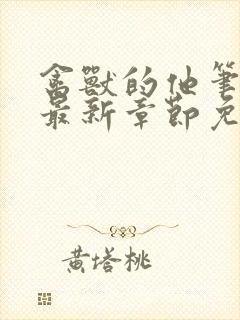 禽獸的他筆
最新章節免
黃塔桃